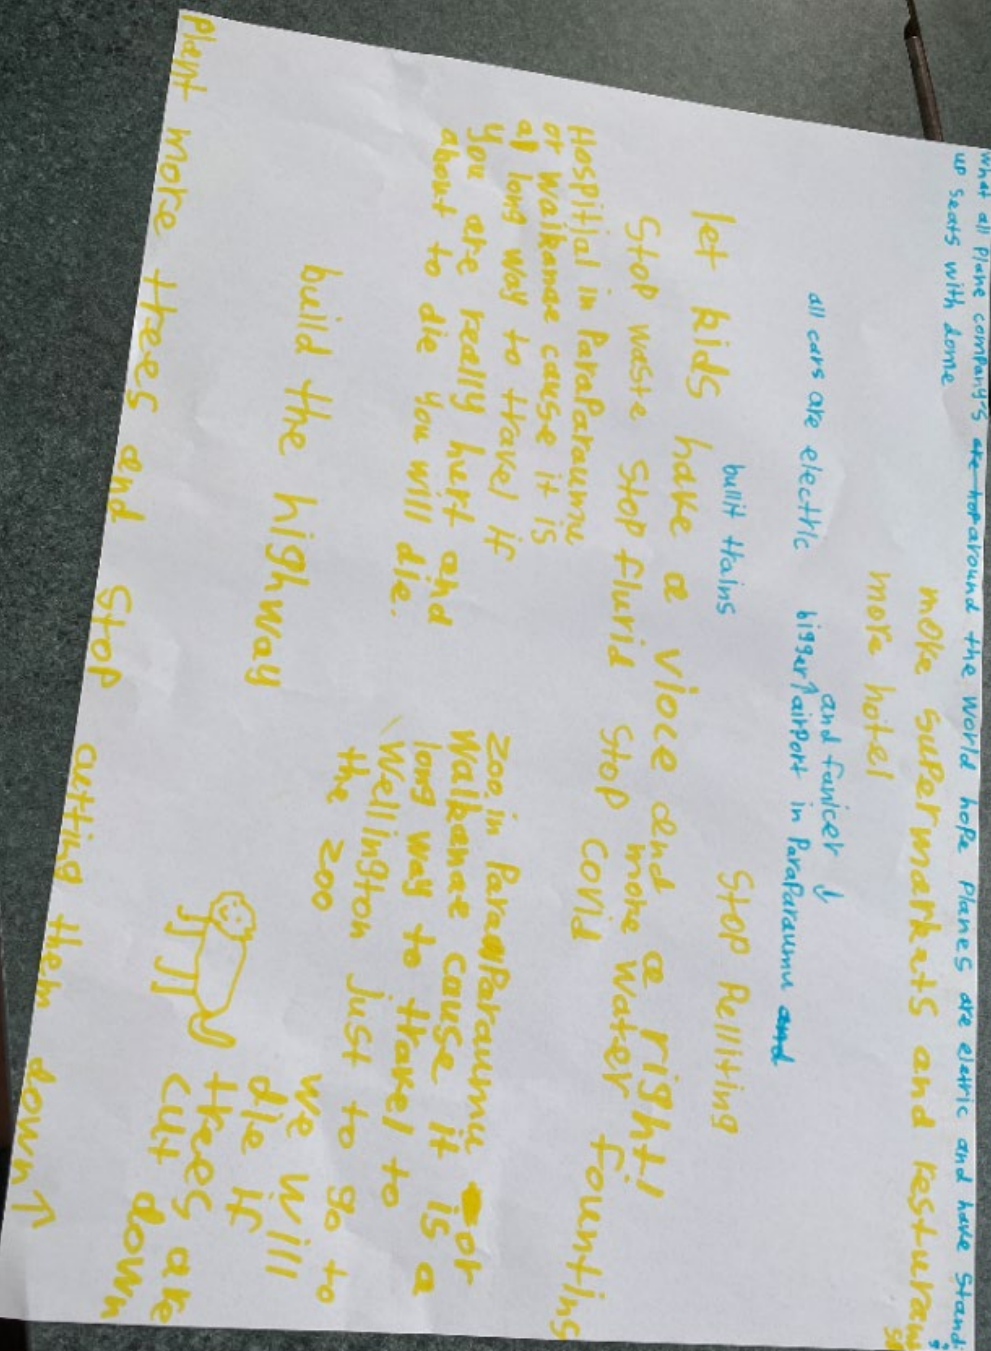 what all plane company's are hop around the world hope planes are eletric and have standing
up seats with dome
more supermarkets and resturants
more hotel
and fanicer ↓
all cars are electric bigger ↑ airport in Paraparaumu and
bullit trains
Stop Pelliting
let kids have a vioce and a right!
Stop waste stop flurid stop covid
more water fountins
Hospitjal in Paraparaumu
or waikanae cause it is
a long way to travel if
you are really hurt and
about to die you will die.
zoo in Paraparaumu or
Waikanae cause it is a
long way to travel to
Wellington just to go to
the zoo
build the highway
we will
die if
trees are
cut down
Plant more trees and stop cutting them down ↑